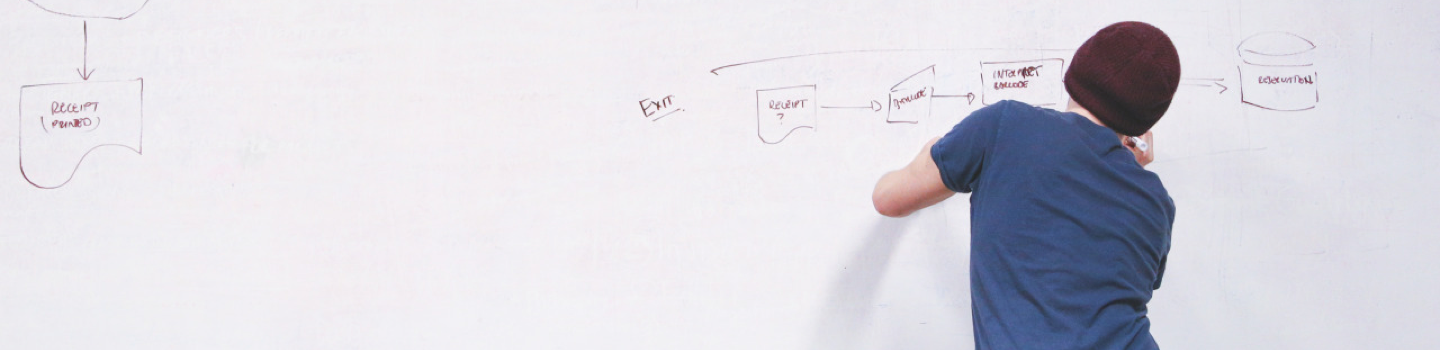 RECEIPT
(PRINTED)
EXIT.
RECEIPT
?
BARCODE
INTERPRET
BARCODE
RESERVATION